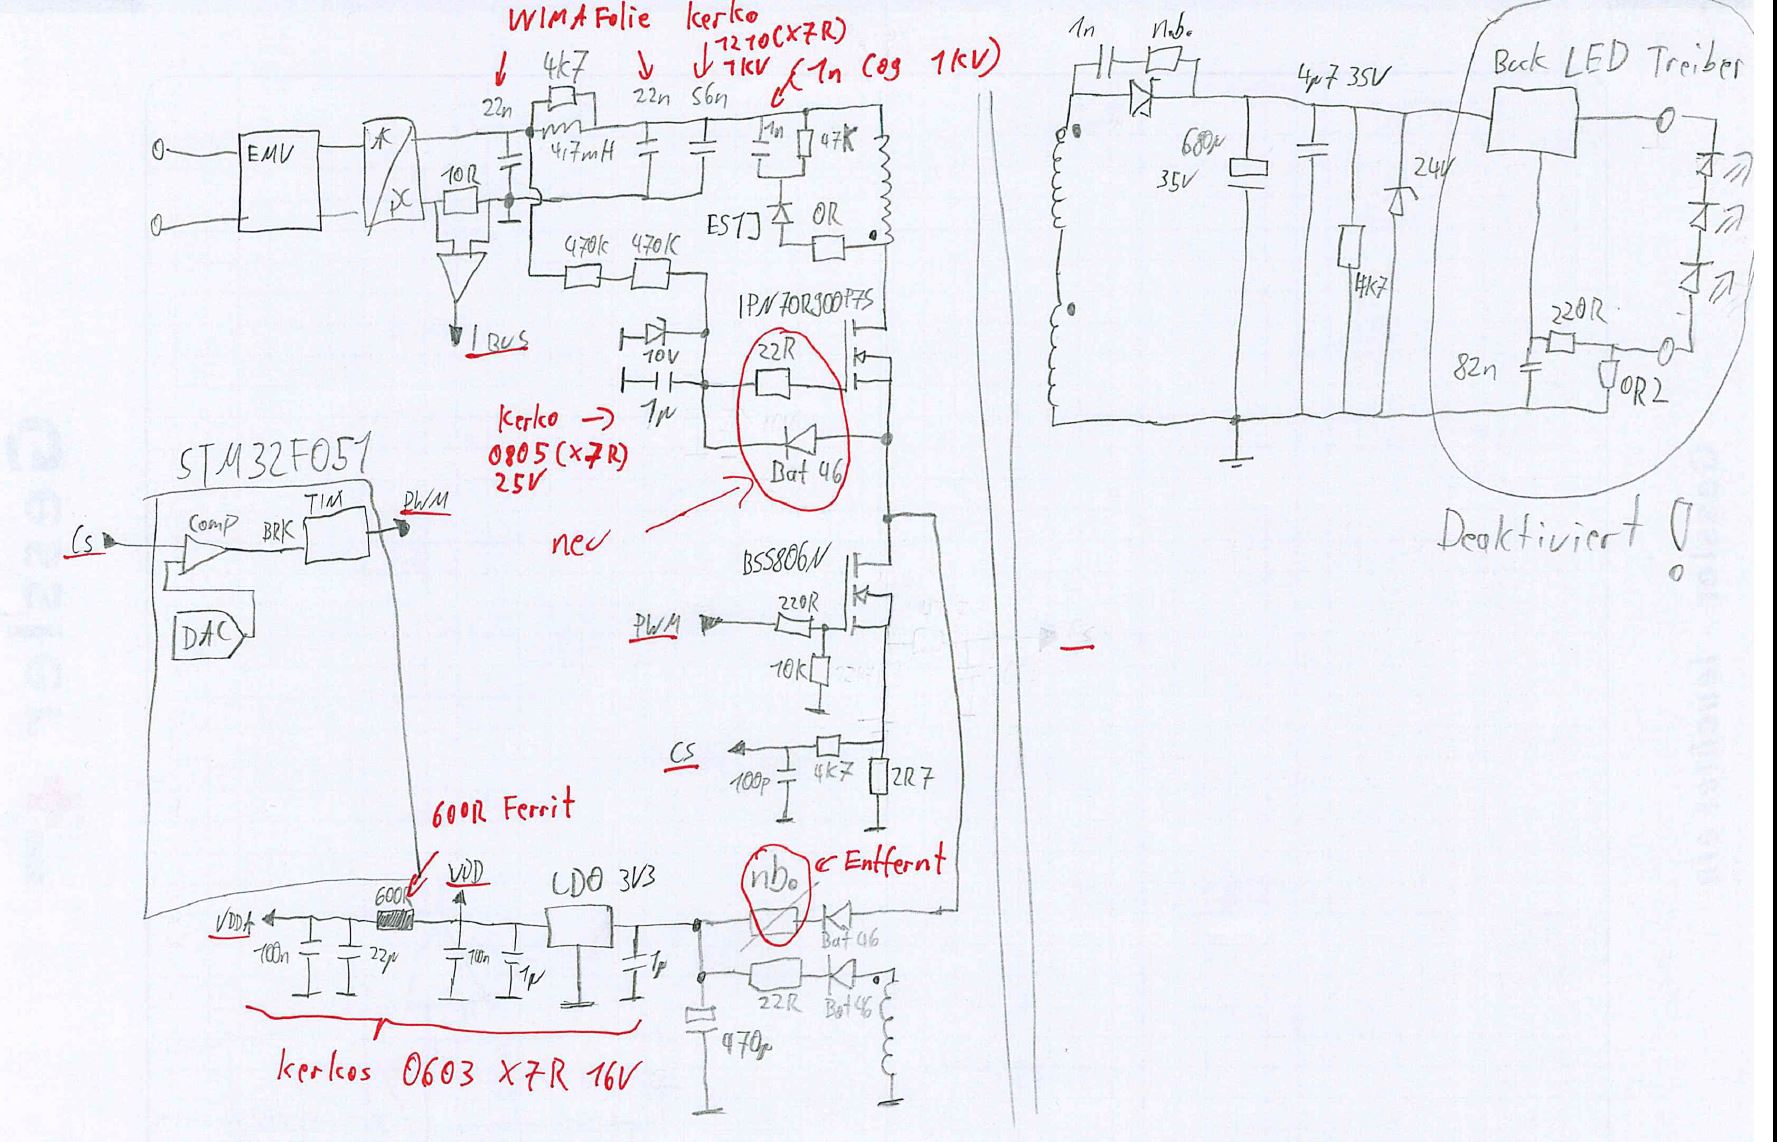 WIMA Folie
kerko
1210 (X7R)
1KV
1n C0g 1KV)
4k7
22n
22n
56n
1n
47K
4,7mH
EMV
AC
DC
10R
ES1J
0R
470k
470K
IBUS
10V
1µ
kerko →
0805 (X7R)
25V
IPN70R900P7S
22R
Bat 46
neu
STM32F051
Cs
Comp
BRK
TIM
PWM
DAC
BSS806N
PWM
220R
10K
CS
100p
4K7
2R7
600R Ferrit
nb.
Entfernt
VDDA
100n
22µ
600R
VDD
100n
1µ
LDO 3V3
1µ
Bat 46
22R
Bat 46
470µ
kerkos 0603 X7R 16V
1n
n.b.
680µ
35V
4µ7 35V
4K7
24V
Buck LED Treiber
82n
220R
0R2
Deaktiviert !